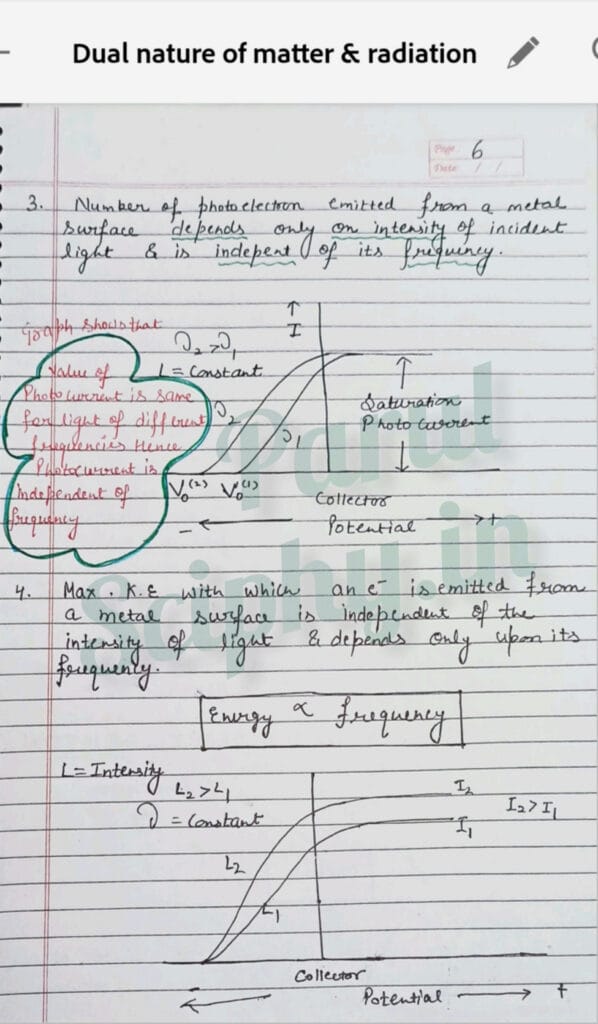 Dual nature of matter & radiation
Page 6
Date / /
3. Number of photoelectron emitted from a metal
surface depends only on intensity of incident
light & is indepent of its frequency.
Graph shows that
Value of
Photocurrent is same
for light of different
frequencies Hence
Photocurrent is
independent of
frequency
ν₂ > ν₁
L = Constant
I
ν₂
ν₁
Saturation
Photo Current
V₀⁽²⁾ V₀⁽¹⁾
Collector
- ← Potential → +
Parul
Sciphy.in
4. Max. K.E with which an e⁻ is emitted from
a metal surface is independent of the
intensity of light & depends only upon its
frequency.
Energy ∝ frequency
L = Intensity
L₂ > L₁
ν = Constant
I₂
I₁
I₂ > I₁
L₂
L₁
Collector
- ← Potential → +